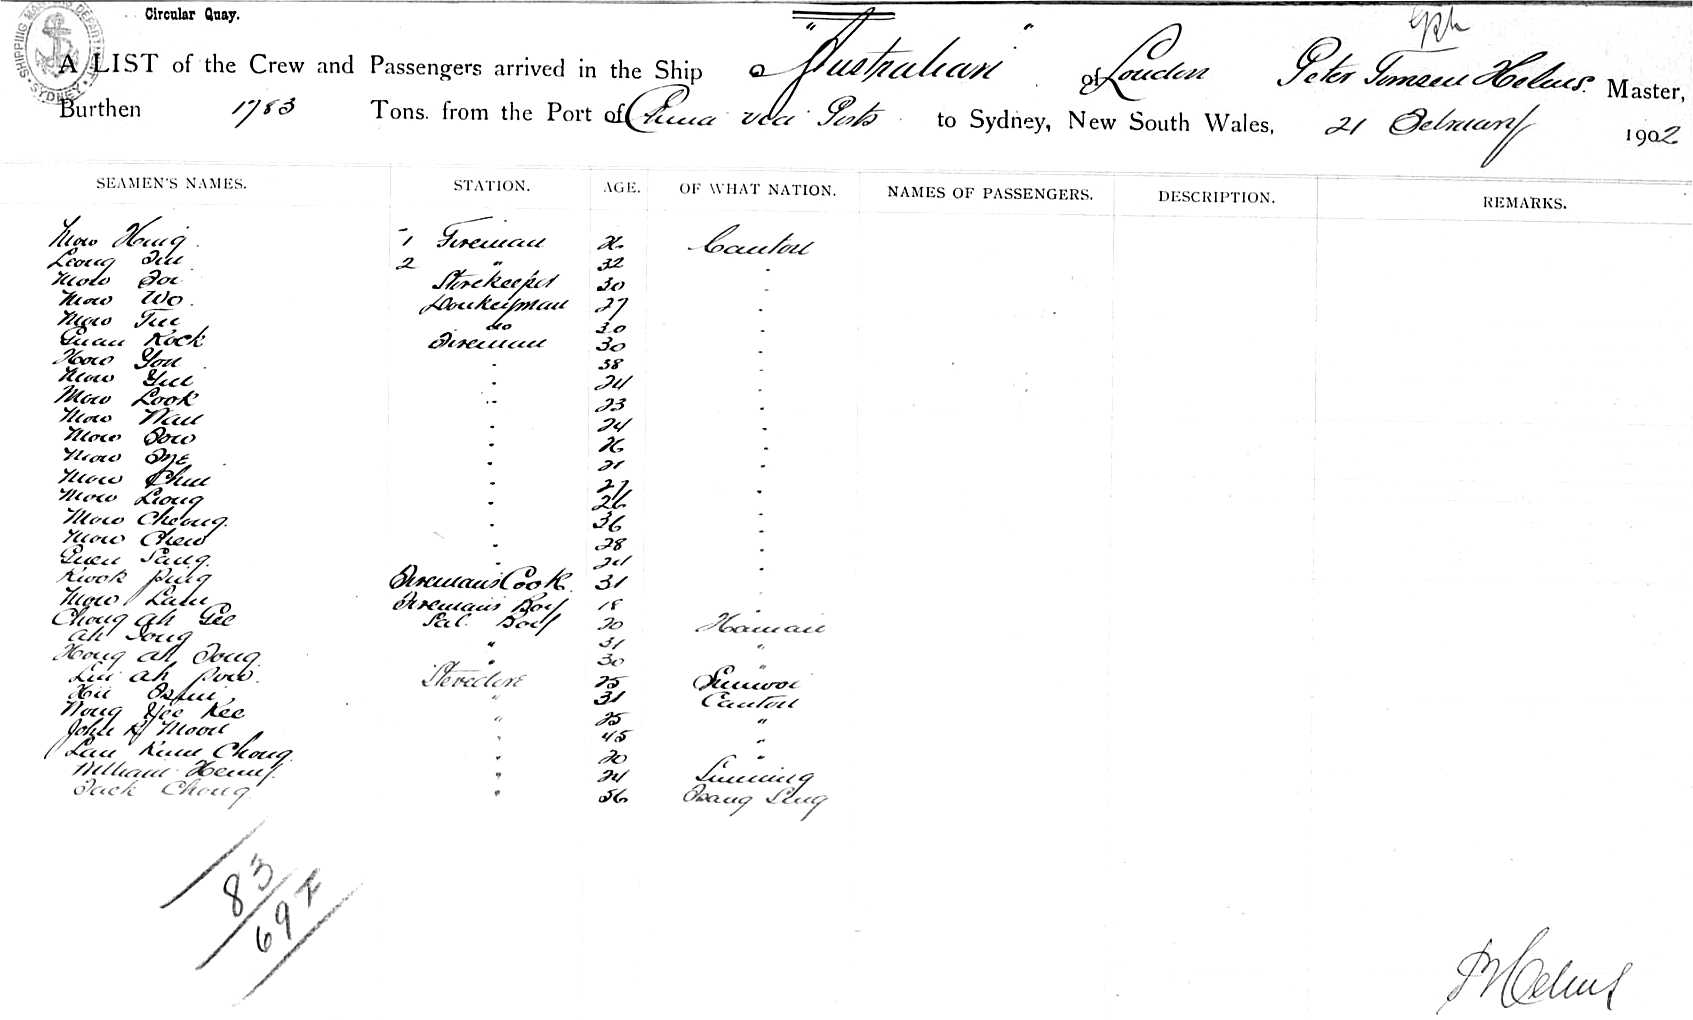 SHIPPING MASTER'S DEPARTMENT SYDNEY
Circular Quay.
A LIST of the Crew and Passengers arrived in the Ship "Australian" of London Peter Tomsen Helms. Master,
Burthen 1783 Tons. from the Port of China via Ports to Sydney, New South Wales, 21 February 1902
SEAMEN'S NAMES. STATION. AGE. OF WHAT NATION. NAMES OF PASSENGERS. DESCRIPTION. REMARKS.
Mow Hing 1 Fireman 26 Canton
Leong 2 " 32 "
Mow Storekeeper 30 "
Mow Wo Donkeyman 27 "
Mow do 30 "
Kock Fireman 30 "
How You " 38 "
Mow " 24 "
Mow Look " 23 "
Mow " 24 "
Mow " 26 "
Mow " 21 "
Mow " 27 "
Mow Leong " 26 "
Mow Cheong " 36 "
Mow Chew " 28 "
" 24 "
Kwok Ping Fireman's Cook 31 "
Mow Lam Fireman's Boy 18 "
Chong Ah Gee Sal. Boy 20 Hainan
Ah " 31 "
Hong Ah " 30 "
Ah Stevedore 25 Sunwoi
" 31 Canton
Wong Yee Kee " 25 "
John K Moon " 45 "
Chong " 20 "
William Henry " 24 Sunning
Jack Chong " 56
83
69
P T Helms